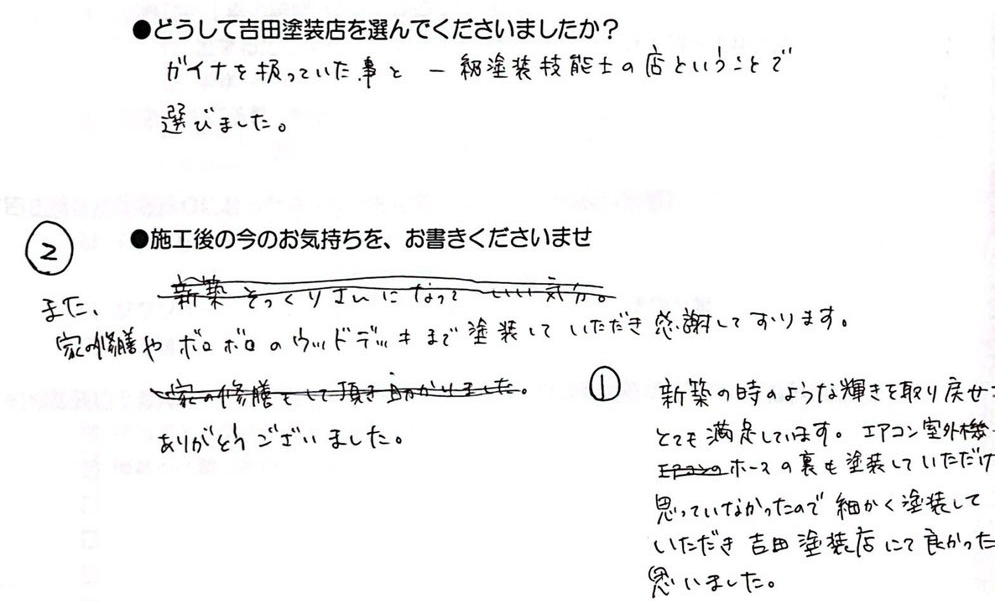 ●どうして吉田塗装店を選んでくださいましたか？
ガイナを扱っていた事と 一級塗装技能士の店ということで
選びました。
②
●施工後の今のお気持ちを、お書きくださいませ
新築そっくりさんになっていい気分。
また、
家の修繕やボロボロのウッドデッキまで塗装していただき感謝しております。
家の修繕をして頂き助かりました。
ありがとうございました。
① 新築の時のような輝きを取り戻せ
とても満足しています。エアコン室外機
エアコンのホースの裏も塗装していただけ
思っていなかったので細かく塗装して
いただき吉田塗装店にて良かった
思いました。